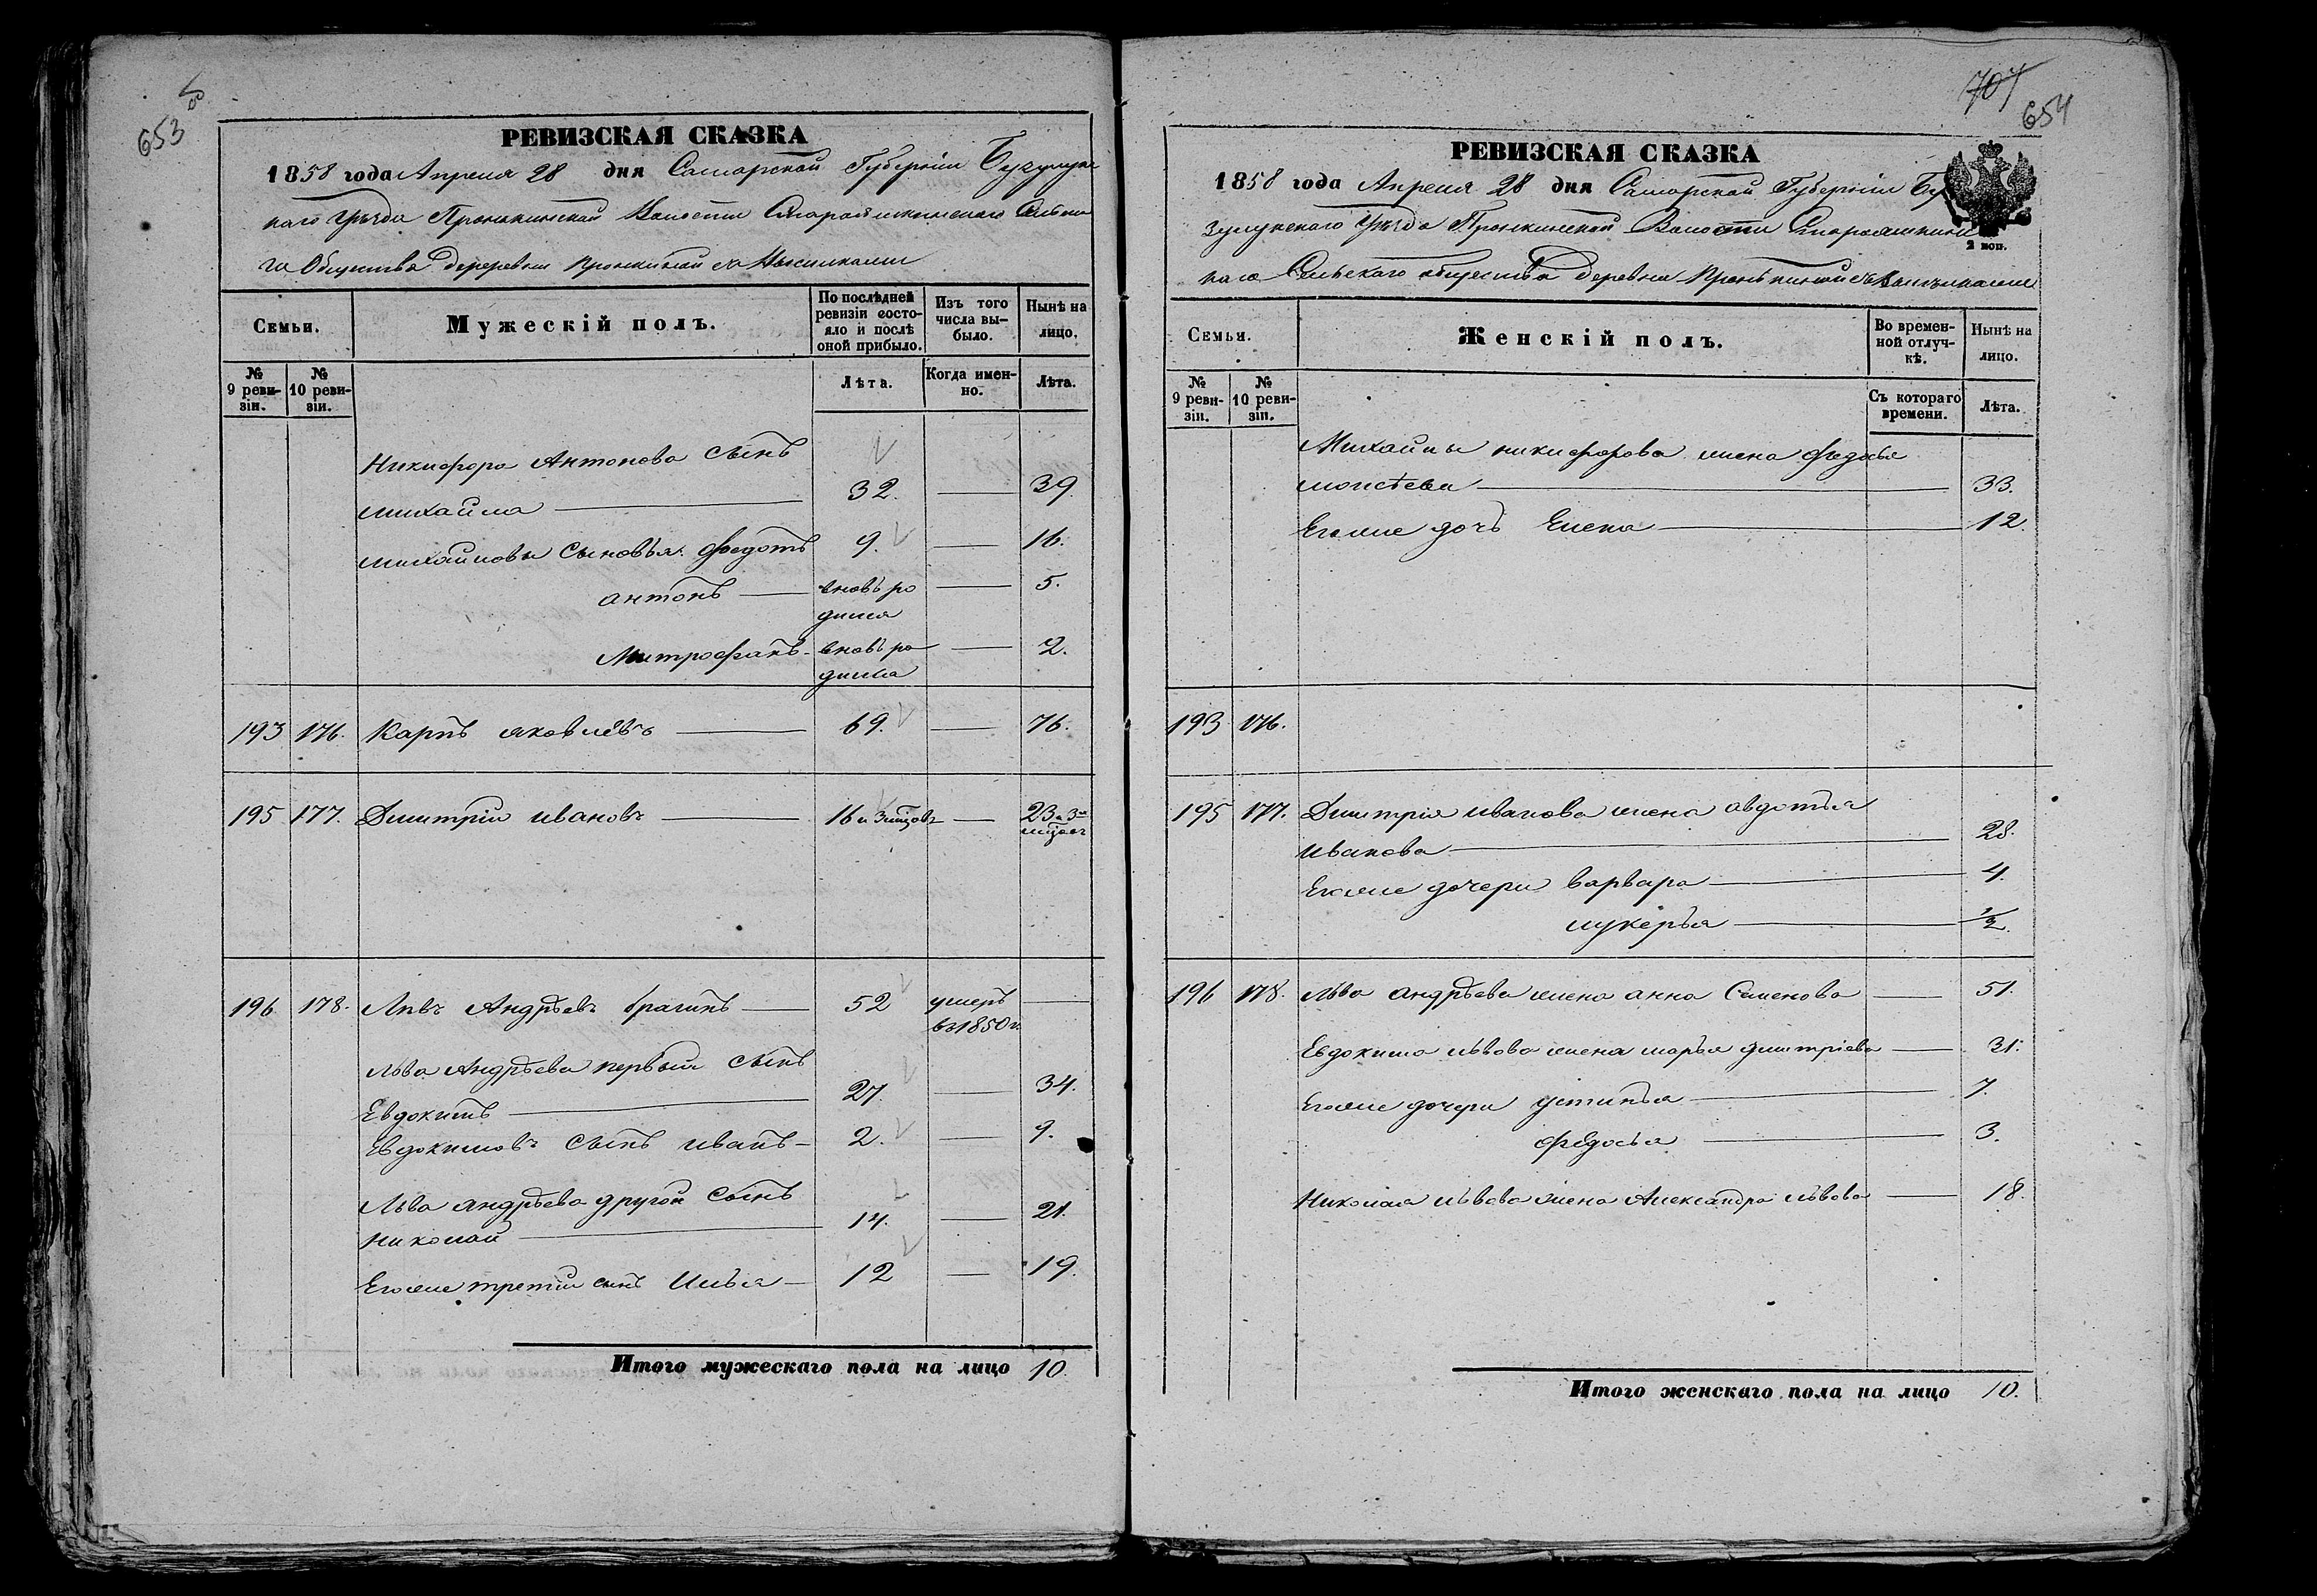 653
РЕВИЗСКАЯ СКАЗКА
1858 года Апреля 28 дня Самарской Губерніи Бузулукс
каго Уѣзда Пронькинской Волости
го Общества Деревни Пронькиной
Семьи.
Мужескій полъ.
По послѣдней ревизіи состо-
яло и послѣ оной прибыло.
Изъ того числа вы-
было.
Нынѣ на лицо.
№ 9 реви-
зіи.
№ 10 реви-
зіи.
Лѣта.
Когда имен-
но.
Лѣта.
Никифора Антонова Сынъ
михайла 32. 39
михайловы Сыновья федотъ 9. 16.
антонъ вновь ро 5.
дился
Митрофанъ вновь ро 2.
дился
193 176. Карпъ яковлевъ 69. 76.
195 177. Дмитрій ивановъ 16 и 3 мѣцовъ 23 и 3
мѣцовъ
196 178. Левъ Андрѣевъ брагинъ 52 умеръ
въ 1850 г.
Льва Андрѣева первый Сынъ
Евдокимъ 27. 34.
Евдокимовъ Сынъ иванъ 2. 9.
Льва андрѣева другой Сынъ
николай 14. 21.
Егоже третій сынъ Илья 12 19.
Итого мужескаго пола на лицо 10.
707
654
РЕВИЗСКАЯ СКАЗКА
2 коп.
1858 года Апреля 28 дня Самарской Губерніи Бу
зулукскаго Уѣзда Пронкинской Волости Старояшкинс
каго Сельскаго общества Деревни Пронькиной
Семьи.
Женскій полъ.
Во времен-
ной отлуч-
кѣ.
Нынѣ на лицо.
№ 9 реви-
зіи.
№ 10 реви-
зіи.
Съ котораго времени.
Лѣта.
Михайлы никифорова жена федосья
моисѣева 33.
Егоже дочь Елена 12.
193 176.
195 177. Дмитрія иванова жена авдотья
иванова 28.
Егоже дочери варвара 4.
лукерья 1/2.
196 178. Льва андрѣева жена анна Семенова 51.
Евдокима львова жена марья дмитріева 31.
Егоже дочери устинья 7.
федосья 3.
Николая львова жена Александра львова 18.
Итого женскаго пола на лицо 10.